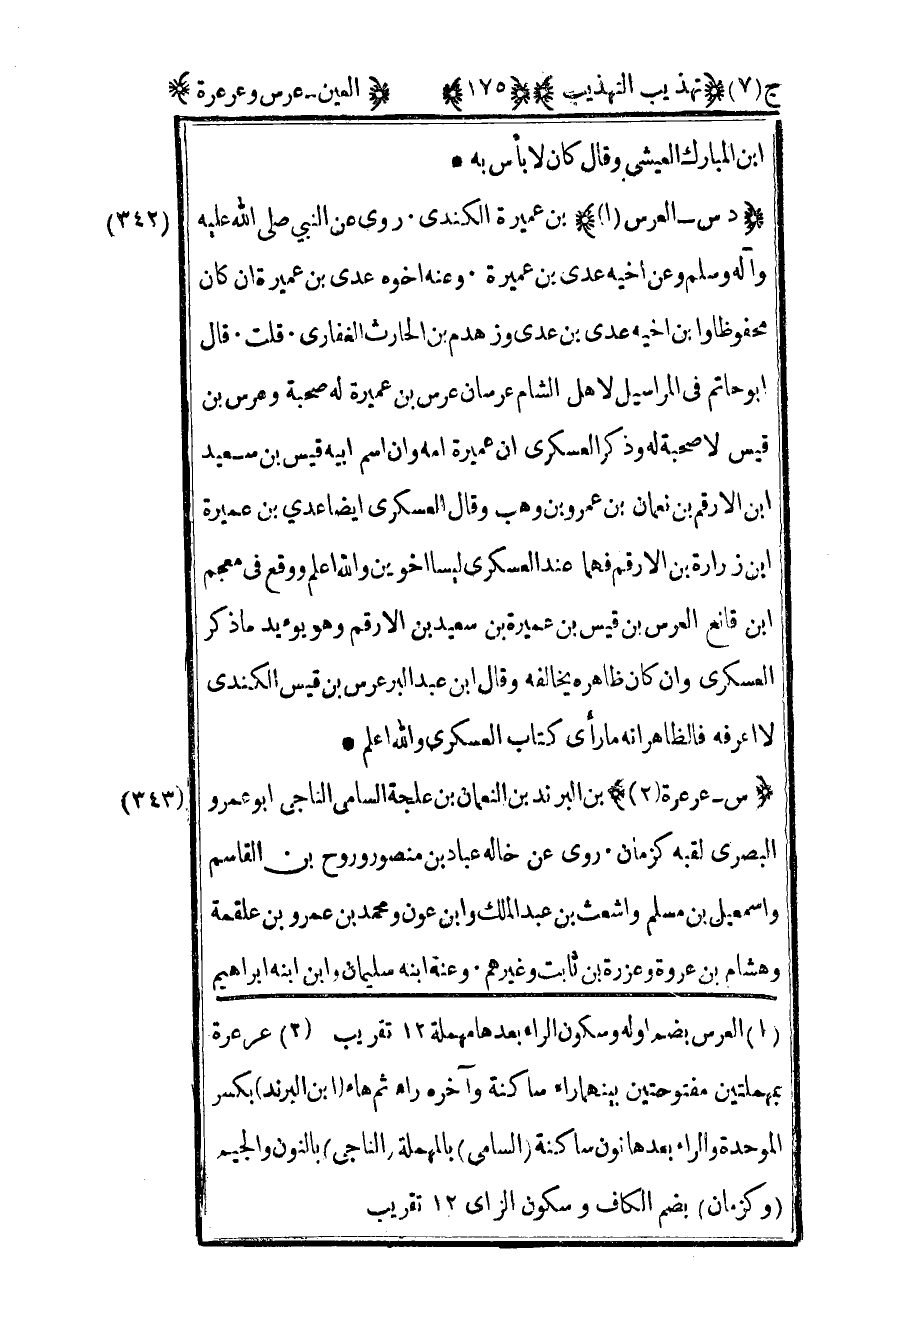 ج (٧) ﴿ تهذيب التهذيب ﴾ ﴿ ١٧٥ ﴾ ﴿ العين - عرس وعرعرة ﴾
ابن المبارك العيشي وقال كان لا بأس به •
﴿ د س - العرس (١) ﴾ بن عميرة الكندى · روى عن النبي صلى الله عليه (٣٤٢)
وآله وسلم وعن اخيه عدى بن عميرة · وعنه اخوه عدى بن عميرة ان كان
محفوظا وابن اخيه عدى بن عدى وزهدم بن الحارث الغفارى · قلت · قال
ابو حاتم فى المراسيل لاهل الشام عرسان عرس بن عميرة له صحبة وعرس بن
قيس لا صحبة له وذكر العسكرى ان عميرة امه وان اسم ابيه قيس بن سعيد
ابن الارقم بن نعمان بن عمرو بن وهب وقال العسكرى ايضا عدي بن عميرة
ابن زرارة بن الارقم فهما عند العسكرى ليسا اخوين والله اعلم ووقع فى معجم
ابن قانع العرس بن قيس بن عميرة بن سعيد بن الارقم وهو يوءيد ما ذكر
العسكرى وان كان ظاهره يخالفه وقال ابن عبد البر عرس بن قيس الكندى
لا اعرفه فالظاهر انه ما رأى كتاب العسكرى والله اعلم •
﴿ س - عرعرة (٢) ﴾ بن البرند بن النعمان بن علجة السامى الناجى ابو عمرو (٣٤٣)
البصرى لقبه كزمان · روى عن خاله عباد بن منصور وروح بن القاسم
واسمعيل بن مسلم واشعث بن عبد الملك وابن عون ومحمد بن عمرو بن علقمة
وهشام بن عروة وعزرة بن ثابت وغيرهم · وعنه ابنه سليمان وابن ابنه ابراهيم
(١) العرس بضم اوله وسكون الراء بعدها مهملة ١٢ تقريب (٢) عرعرة
بمهملتين مفتوحتين بينهما راء ساكنة وآخره راء ثم هاء (ابن البرند) بكسر
الموحدة والراء بعدها نون ساكنة (السامى) بالمهملة (الناجى) بالنون والجيم
(وكزمان) بضم الكاف وسكون الزاى ١٢ تقريب